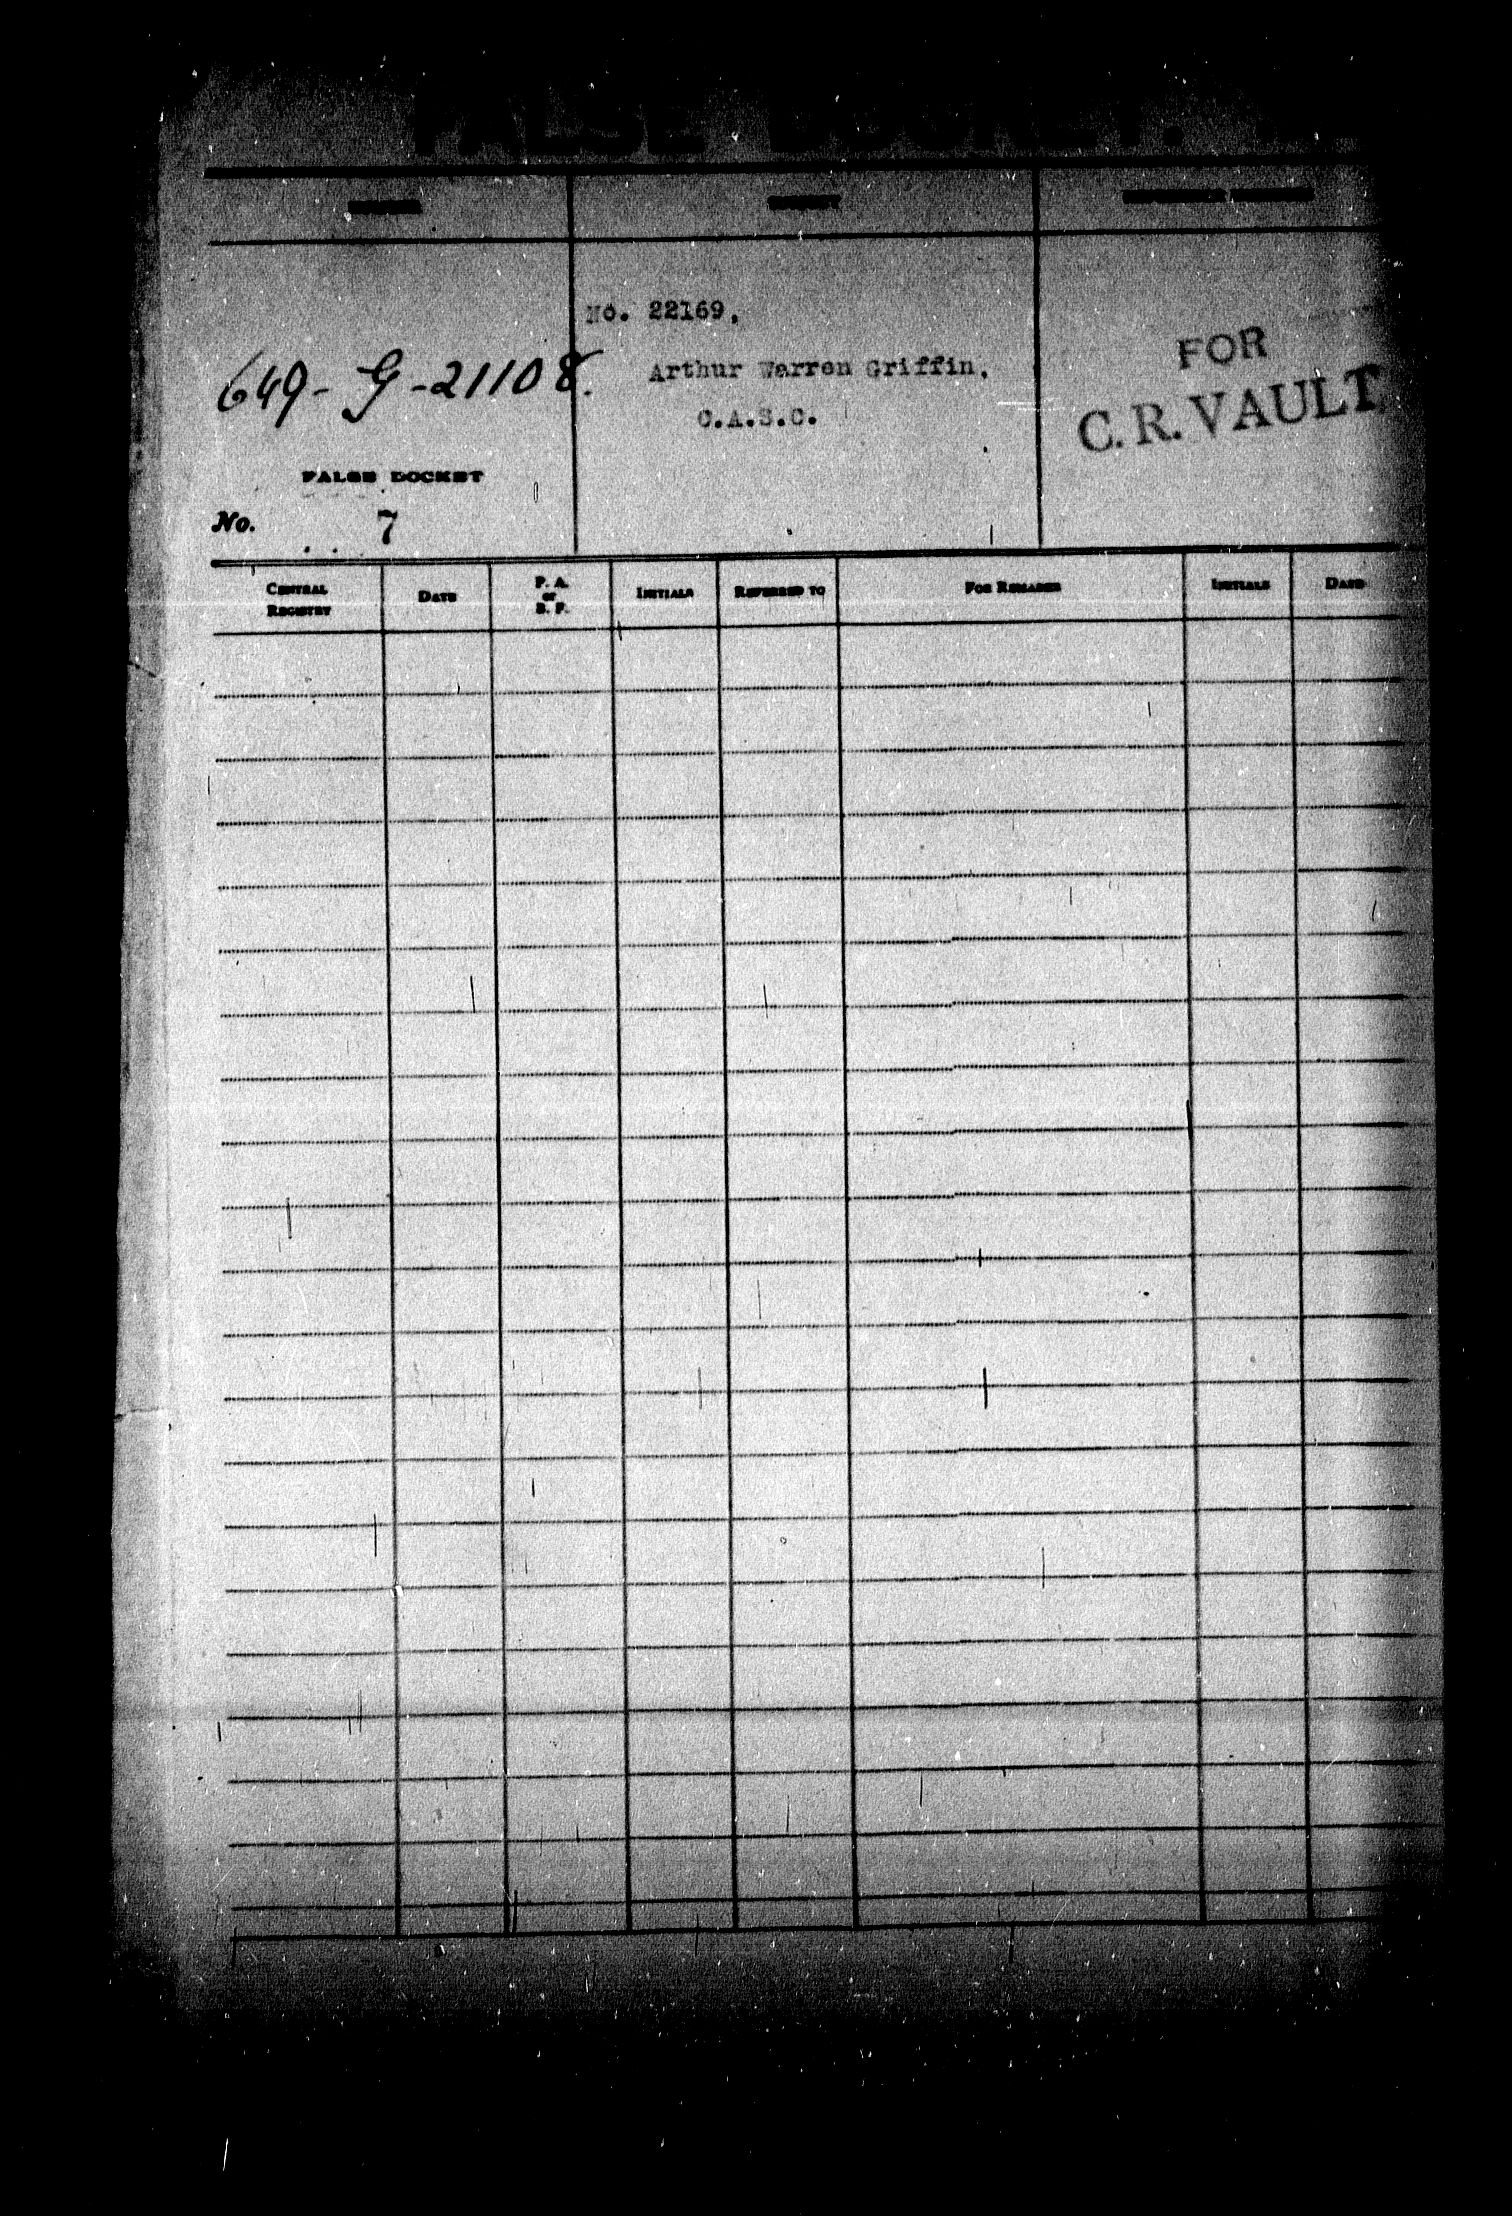 FALSE DOCKET.
SUBJECT
No. 22169,
Arthur Warren Griffin,
C.A.S.C.
649-G-21108.
FOR
C.R. VAULT
FALSE DOCKET
No. 7
CENTRAL REGISTRY DATE P. A. or B. F. INITIALS REFERRED TO FOR REMARKS INITIALS DATE